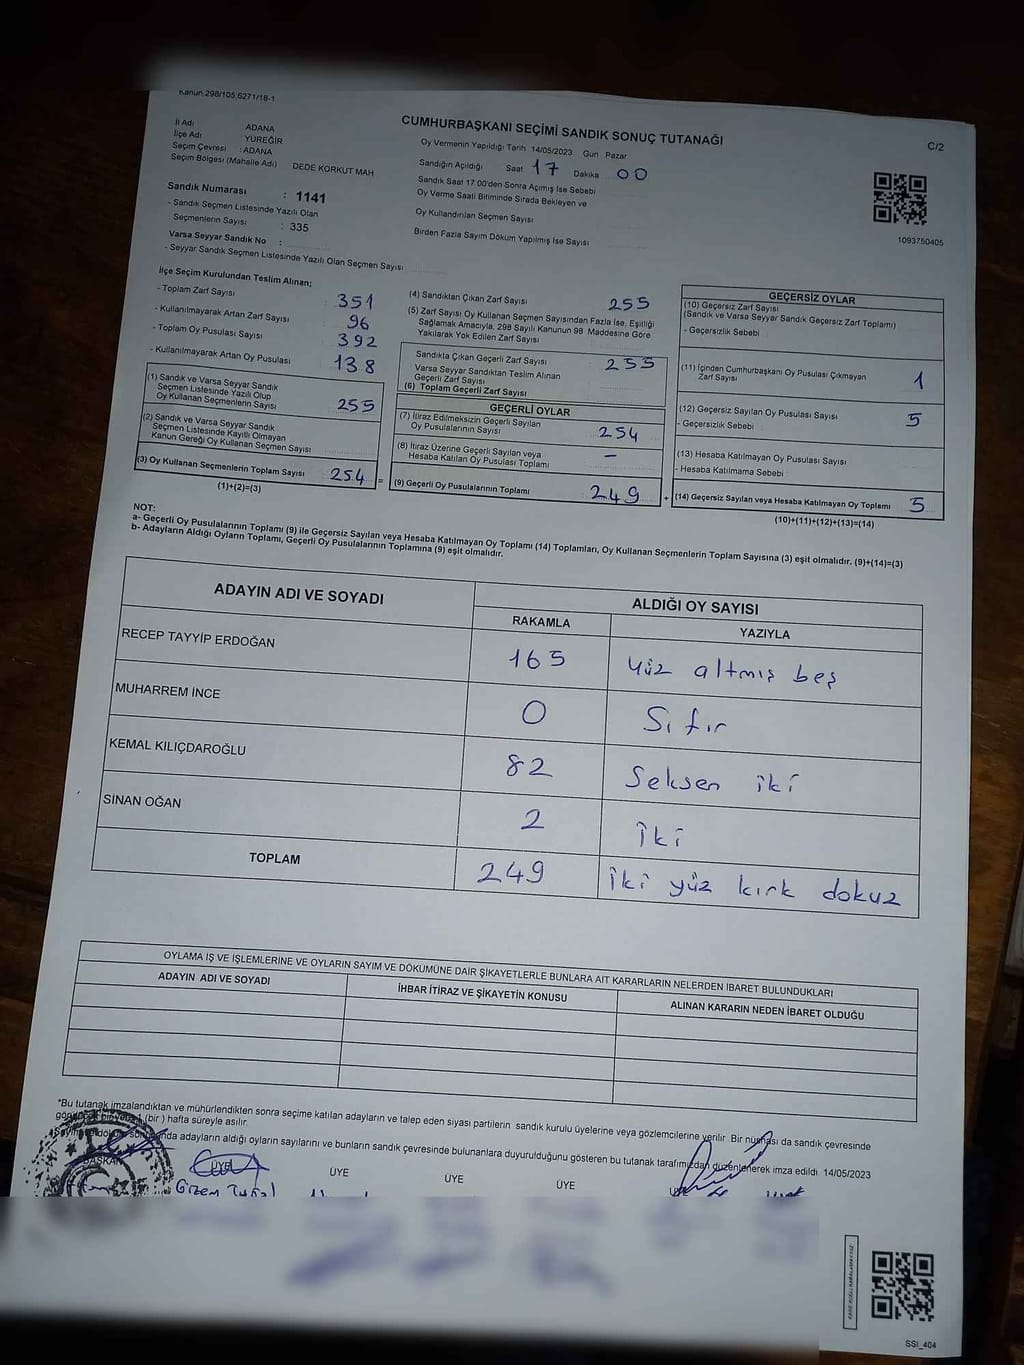 Kanun.298/105,6271/18-1
CUMHURBAŞKANI SEÇİMİ SANDIK SONUÇ TUTANAĞI
C/2
İl Adı ADANA
İlçe Adı YÜREĞİR
Seçim Çevresi : ADANA
Seçim Bölgesi (Mahalle Adı) DEDE KORKUT MAH
Oy Vermenin Yapıldığı Tarih 14/05/2023 Gün Pazar
Sandığın Açıldığı Saat 17 Dakika 00
Sandık Saat 17 00'den Sonra Açımış İse Sebebi
Oy Verme Saati Bitiminde Sırada Bekleyen ve
Oy Kullandırılan Seçmen Sayısı
Birden Fazla Sayım Döküm Yapılmış İse Sayısı
1093750405
Sandık Numarası : 1141
- Sandık Seçmen Listesinde Yazılı Olan
Seçmenlerin Sayısı : 335
Varsa Seyyar Sandık No :
- Seyyar Sandık Seçmen Listesinde Yazılı Olan Seçmen Sayısı
İlçe Seçim Kurulundan Teslim Alınan;
- Toplam Zarf Sayısı 351
- Kullanılmayarak Artan Zarf Sayısı 96
- Toplam Oy Pusulası Sayısı 392
- Kullanılmayarak Artan Oy Pusulası 138
(1) Sandık ve Varsa Seyyar Sandık
Seçmen Listesinde Yazılı Olup
Oy Kullanan Seçmenlerin Sayısı 255
(2) Sandık ve Varsa Seyyar Sandık
Seçmen Listesinde Kayıtlı Olmayan
Kanun Gereği Oy Kullanan Seçmen Sayısı
(3) Oy Kullanan Seçmenlerin Toplam Sayısı 254 =
(1)+(2)=(3)
(4) Sandıktan Çıkan Zarf Sayısı 255
(5) Zarf Sayısı Oy Kullanan Seçmen Sayısından Fazla İse, Eşitliği
Sağlamak Amacıyla, 298 Sayılı Kanunun 98 Maddesine Göre
Yakılarak Yok Edilen Zarf Sayısı
Sandıkta Çıkan Geçerli Zarf Sayısı 255
Varsa Seyyar Sandıktan Teslim Alınan
Geçerli Zarf Sayısı
(6) Toplam Geçerli Zarf Sayısı
GEÇERLİ OYLAR
(7) İtiraz Edilmeksizin Geçerli Sayılan
Oy Pusulalarının Sayısı 254
(8) İtiraz Üzerine Geçerli Sayılan veya
Hesaba Katılan Oy Pusulası Toplamı -
(9) Geçerli Oy Pusulalarının Toplamı 249 +
GEÇERSİZ OYLAR
(10) Geçersiz Zarf Sayısı
(Sandık ve Varsa Seyyar Sandık Geçersiz Zarf Toplamı)
- Geçersizlik Sebebi
(11) İçinden Cumhurbaşkanı Oy Pusulası Çıkmayan
Zarf Sayısı 1
(12) Geçersiz Sayılan Oy Pusulası Sayısı 5
- Geçersizlik Sebebi
(13) Hesaba Katılmayan Oy Pusulası Sayısı
- Hesaba Katılmama Sebebi
(14) Geçersiz Sayılan veya Hesaba Katılmayan Oy Toplamı 5
(10)+(11)+(12)+(13)=(14)
NOT:
a- Geçerli Oy Pusulalarının Toplamı (9) ile Geçersiz Sayılan veya Hesaba Katılmayan Oy Toplamı (14) Toplamları, Oy Kullanan Seçmenlerin Toplam Sayısına (3) eşit olmalıdır. (9)+(14)=(3)
b- Adayların Aldığı Oyların Toplamı, Geçerli Oy Pusulalarının Toplamına (9) eşit olmalıdır.
ADAYIN ADI VE SOYADI
ALDIĞI OY SAYISI
RAKAMLA YAZIYLA
RECEP TAYYİP ERDOĞAN 165 Yüz altmış beş
MUHARREM İNCE 0 Sıfır
KEMAL KILIÇDAROĞLU 82 Seksen iki
SİNAN OĞAN 2 İki
TOPLAM 249 İki yüz kırk dokuz
OYLAMA İŞ VE İŞLEMLERİNE VE OYLARIN SAYIM VE DÖKÜMÜNE DAİR ŞİKAYETLERLE BUNLARA AİT KARARLARIN NELERDEN İBARET BULUNDUKLARI
ADAYIN ADI VE SOYADI İHBAR İTİRAZ VE ŞİKAYETİN KONUSU ALINAN KARARIN NEDEN İBARET OLDUĞU
*Bu tutanak imzalandıktan ve mühürlendikten sonra seçime katılan adayların ve talep eden siyasi partilerin sandık kurulu üyelerine veya gözlemcilerine verilir. Bir nüshası da sandık çevresinde
(bir) hafta süreyle asılır.
adayların aldığı oyların sayılarını ve bunların sandık çevresinde bulunanlara duyurulduğunu gösteren bu tutanak tarafımızdan düzenlenerek imza edildi. 14/05/2023
BAŞKAN ÜYE ÜYE ÜYE ÜYE
Gizem
KARE KODU KARALAMAYINIZ
SSİ_404